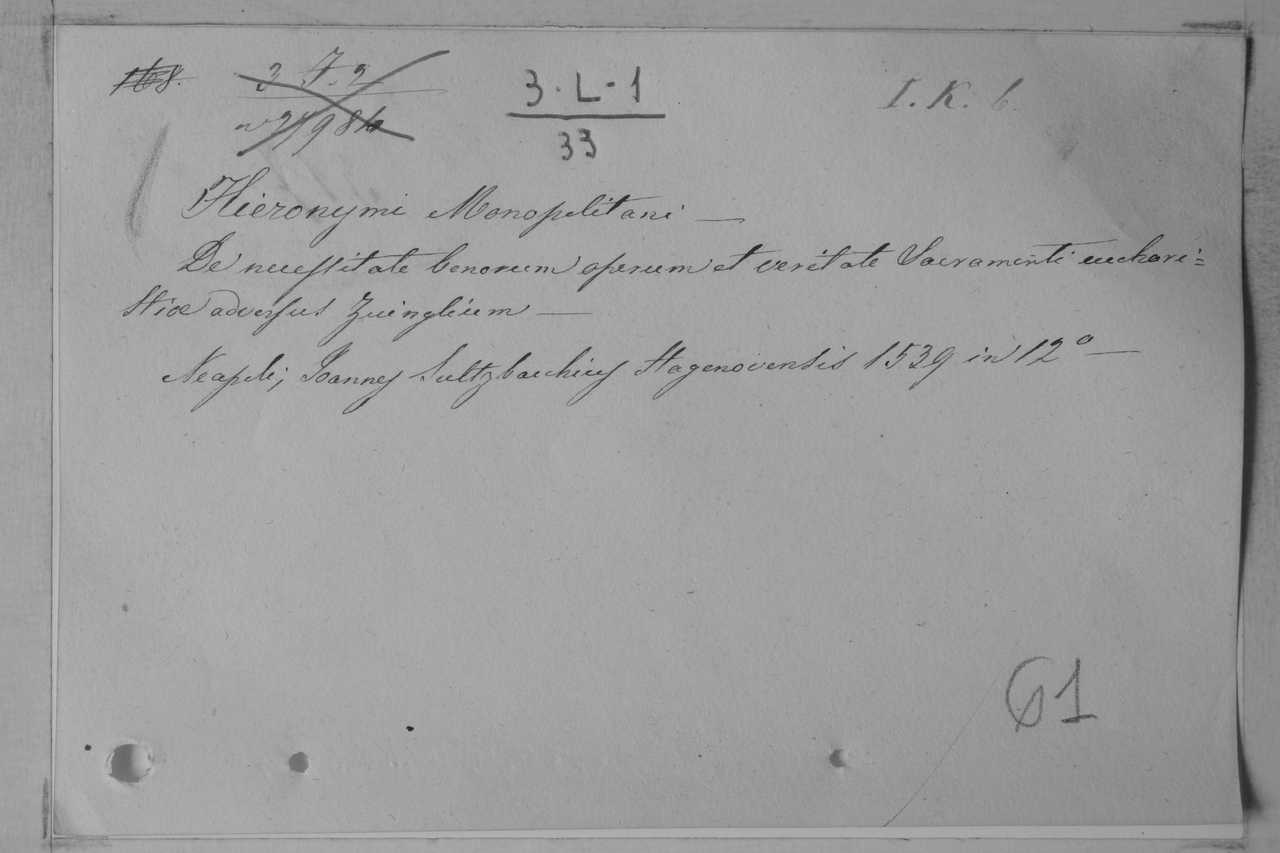 168.
3. 7. 2
3-L-1
33
I. K. 6.
Hieronymi Monopolitani —
De necessitate bonorum operum et veritate Sacramenti euchari=
stiæ adversus Zuinglium —
Neapoli; Joannes Sultzbachius Hagenovensis 1539 in 12º —
61